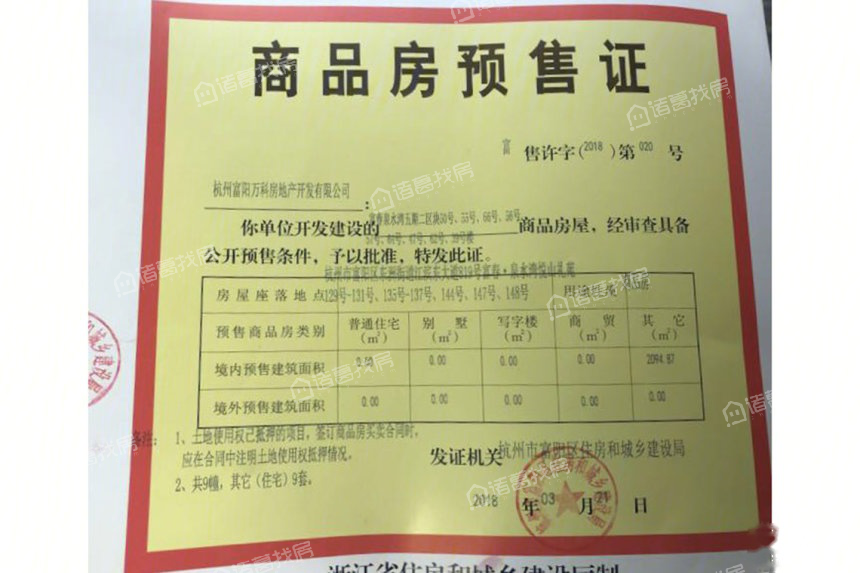 商品房预售证
富 售许字(2018)第 020 号
杭州富阳万科房地产开发有限公司:
你单位开发建设的富春泉水湾五期二区块50号、55号、66号、56号、
商品房屋,经审查具备
公开预售条件,予以批准,特发此证。
杭州市富阳区东洲街道江滨东大道819号富春·泉水湾悦山礼苑
房屋座落地点 129号-131号、135号-137号、144号、147号、148号
预售商品房类别 普通住宅(㎡) 别墅(㎡) 写字楼(㎡) 商贸(㎡) 其它(㎡)
境内预售建筑面积 0.00 0.00 0.00 0.00 2094.87
境外预售建筑面积 0.00 0.00 0.00 0.00 0.00
备注: 1、土地使用权已抵押的项目,签订商品房买卖合同时,
应在合同中注明土地使用权抵押情况。
2、共9幢,其它(住宅)9套。
发证机关 杭州市富阳区住房和城乡建设局
2018 年 03 月 21 日
浙江省住房和城乡建设厅制
诸葛找房